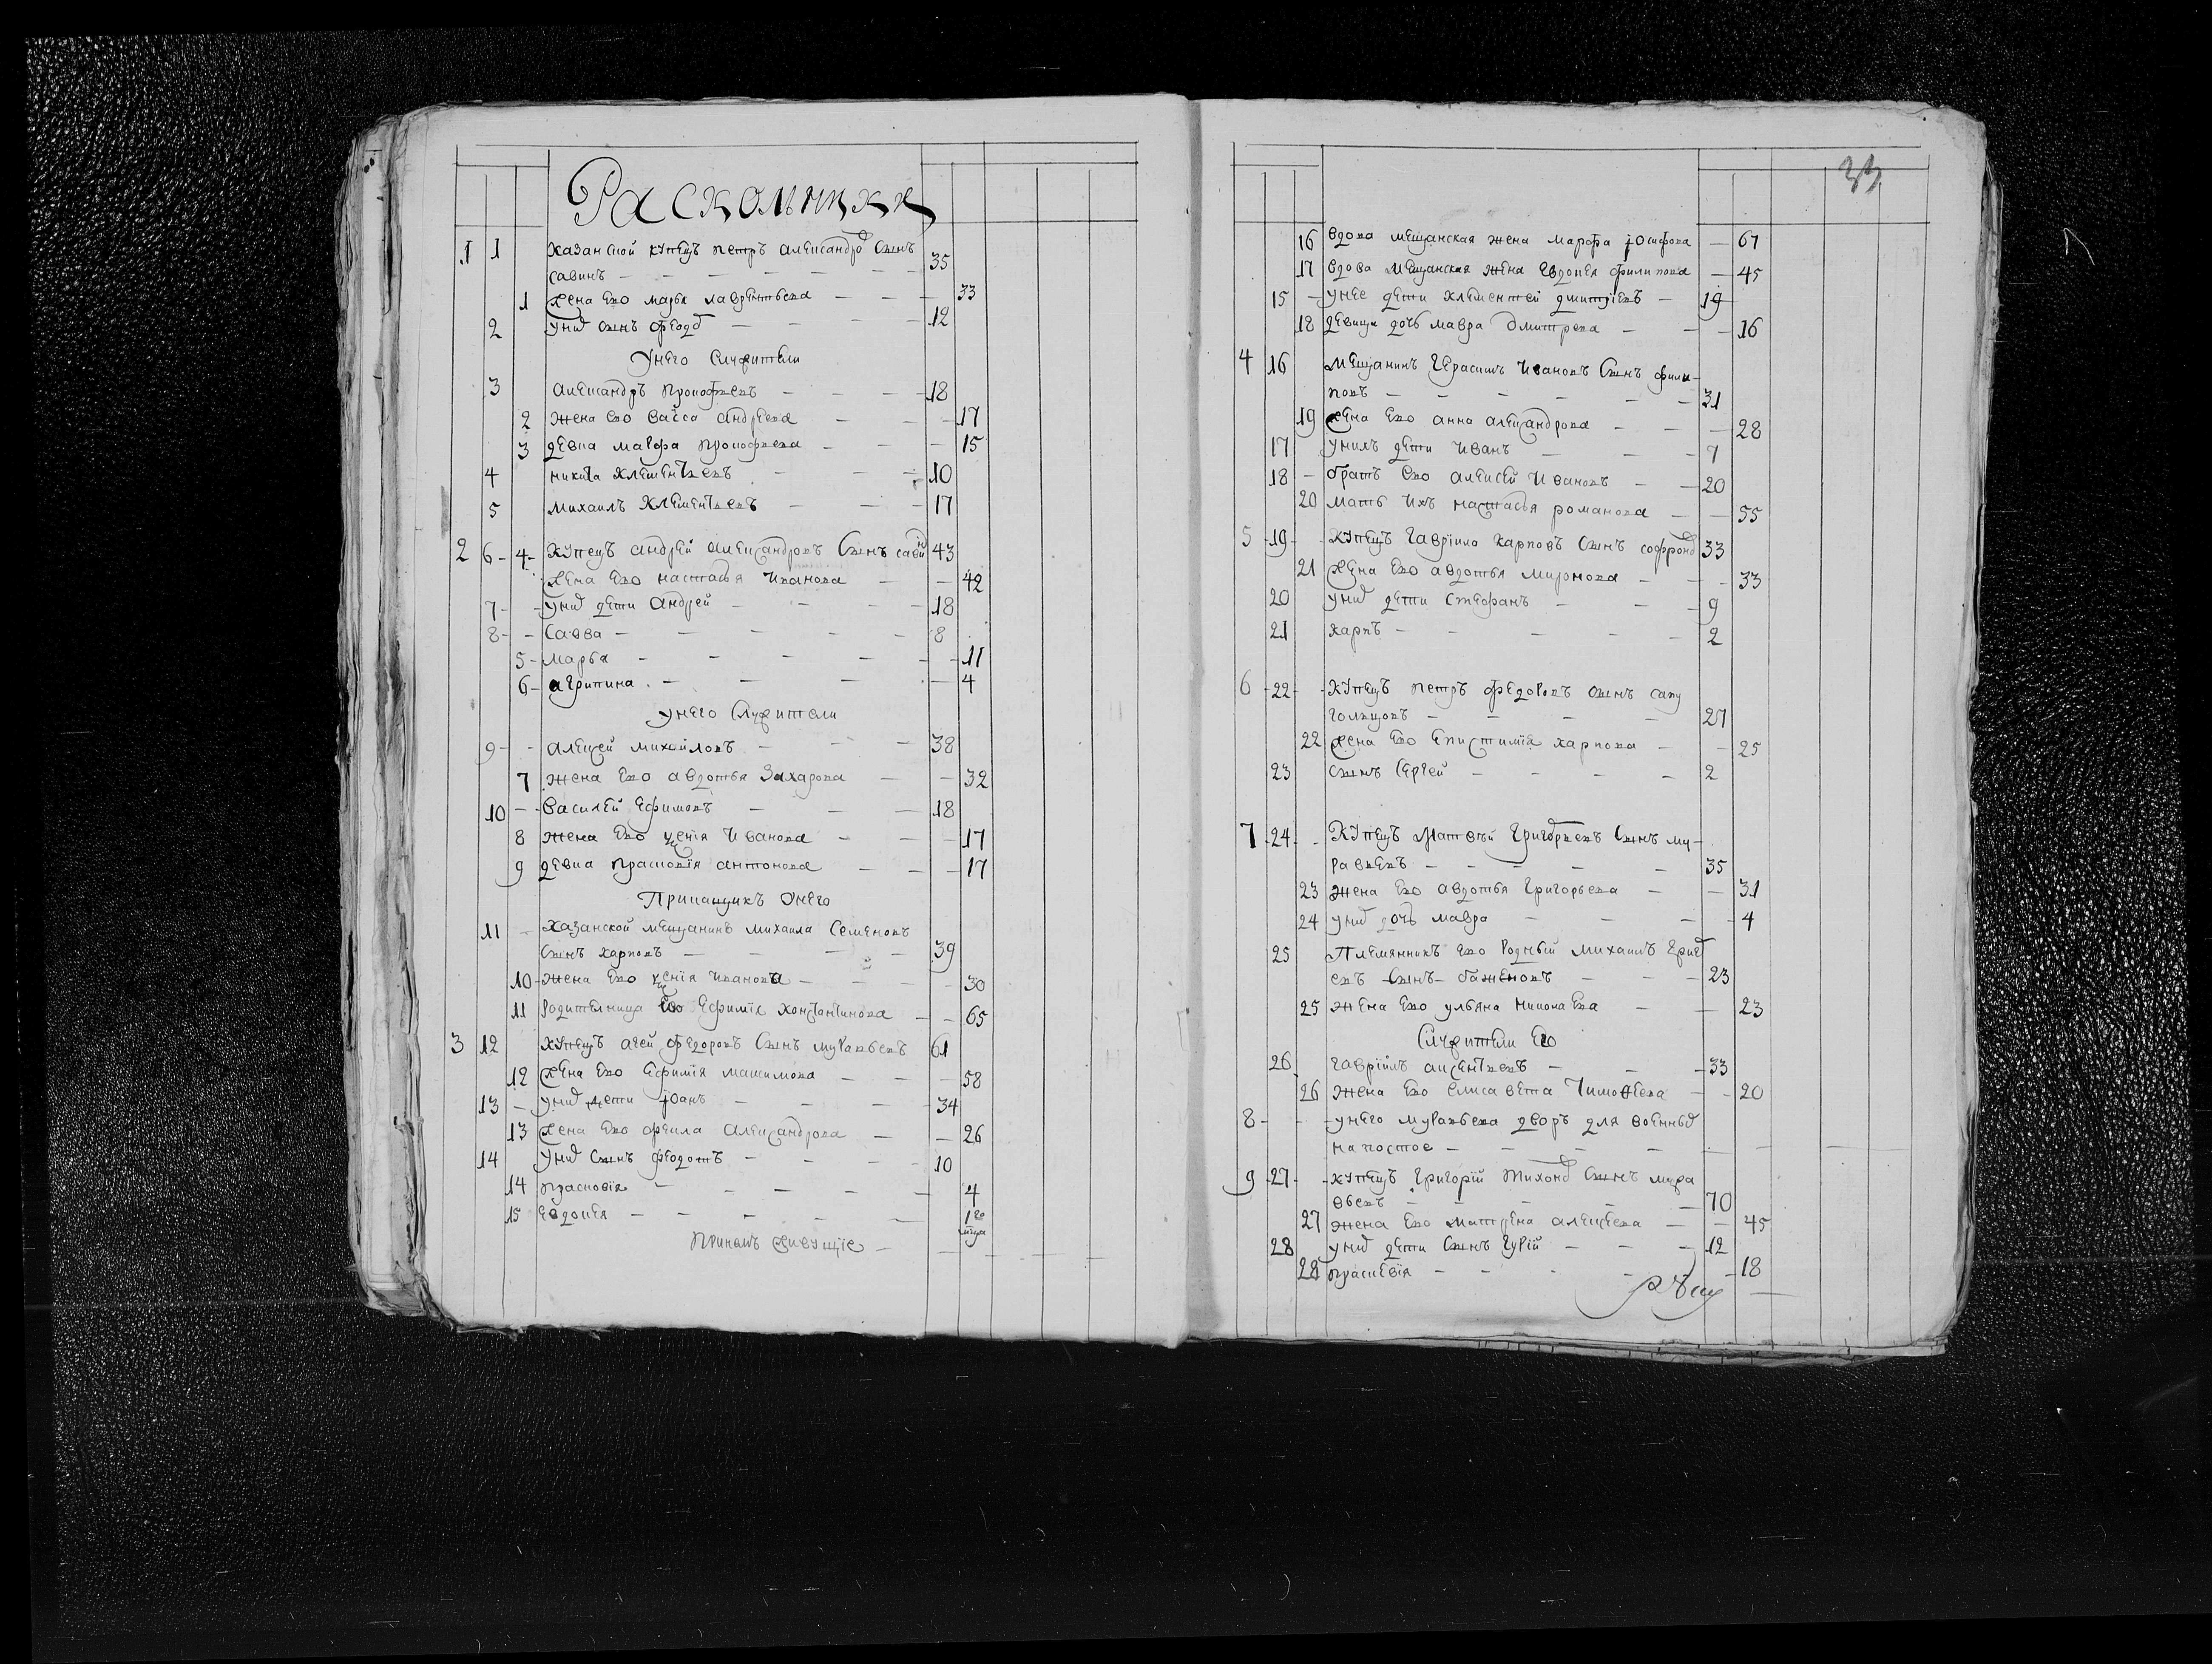 Раскольники
1 1 казанской купецъ петръ александро сынъ
савинъ 35
1 жена ево марья лаврентьева 33
2 у них сынъ феодо 12
у него служители
3 александръ прокофьевъ 18
2 жена ево васса андреева 17
3 девка мавра прокофьева 15
4 никита клементьевъ 10
5 михаилъ клементьевъ 17
2 6 4 купецъ андрей александровъ сынъ савин 43
жена ево настасья иванова 42
7 у них дети андрей 18
8 савва 8
5 марья 11
6 агрипина 4
у него служители
9 алексей михайловъ 38
7 жена ево авдотья захарова 32
10 василей ефимовъ 18
8 жена ево ксенiя иванова 17
9 девка прасковiя антонова 17
Прикащикъ у него
11 казанской мещанинъ михаила семеновъ
сынъ карповъ 39
10 жена ево ксенiя иванова 30
11 родительница ево ефимiя константинова 65
3 12 купецъ агей федоровъ сынъ муравьевъ 61
12 жена ево ефимiя макимова 58
13 у них дети iоанъ 34
13 жена ево фекла александрова 26
14 у них сынъ феодотъ 10
14 прасковiя 4
15 евдокея 1го
При нихъ живущiе
33
16 вдова мещанская жена марфа iосифова 67
17 вдова мещанская жена евдокея филипова 45
15 у нее дети клементей дмитрiевъ 19
18 девица дочь мавра дмитрева 16
4 16 мещанинъ герасимъ ивановъ сынъ фили-
повъ 31
19 жена ево анна александрова 28
17 у нихъ дети иванъ 7
18 братъ ево алексей ивановъ 20
20 мать ихъ настасья романова 55
5 19 купецъ гаврiила карповъ сынъ софроно 33
21 жена ево авдотья миронова 33
20 у них дети стефанъ 9
21 карпъ 2
6 22 купецъ петръ федоровъ сынъ сапу
гольцовъ 27
22 жена ево епистимiя карпова 25
23 сынъ сергей 2
7 24 купецъ матвъй григорьевъ сынъ му-
равьевъ 35
23 жена ево авдотья григорьева 31
24 у них дочь мавра 4
25 племянникъ ево родный михаилъ григ
евъ сынъ баженовъ 23
25 жена ево ульяна николаева 23
служители ево
26 гаврiилъ аксентьевъ 33
26 жена ево елисавета тимоѳеева 20
8 у него муравьева дворъ для военных
на постое
9 27 купецъ григорiй тихоно сынъ мура
вьевъ 70
27 жена ево матрена алексеева 45
28 у них дети сынъ гурiй 12
28 прасковiя 18